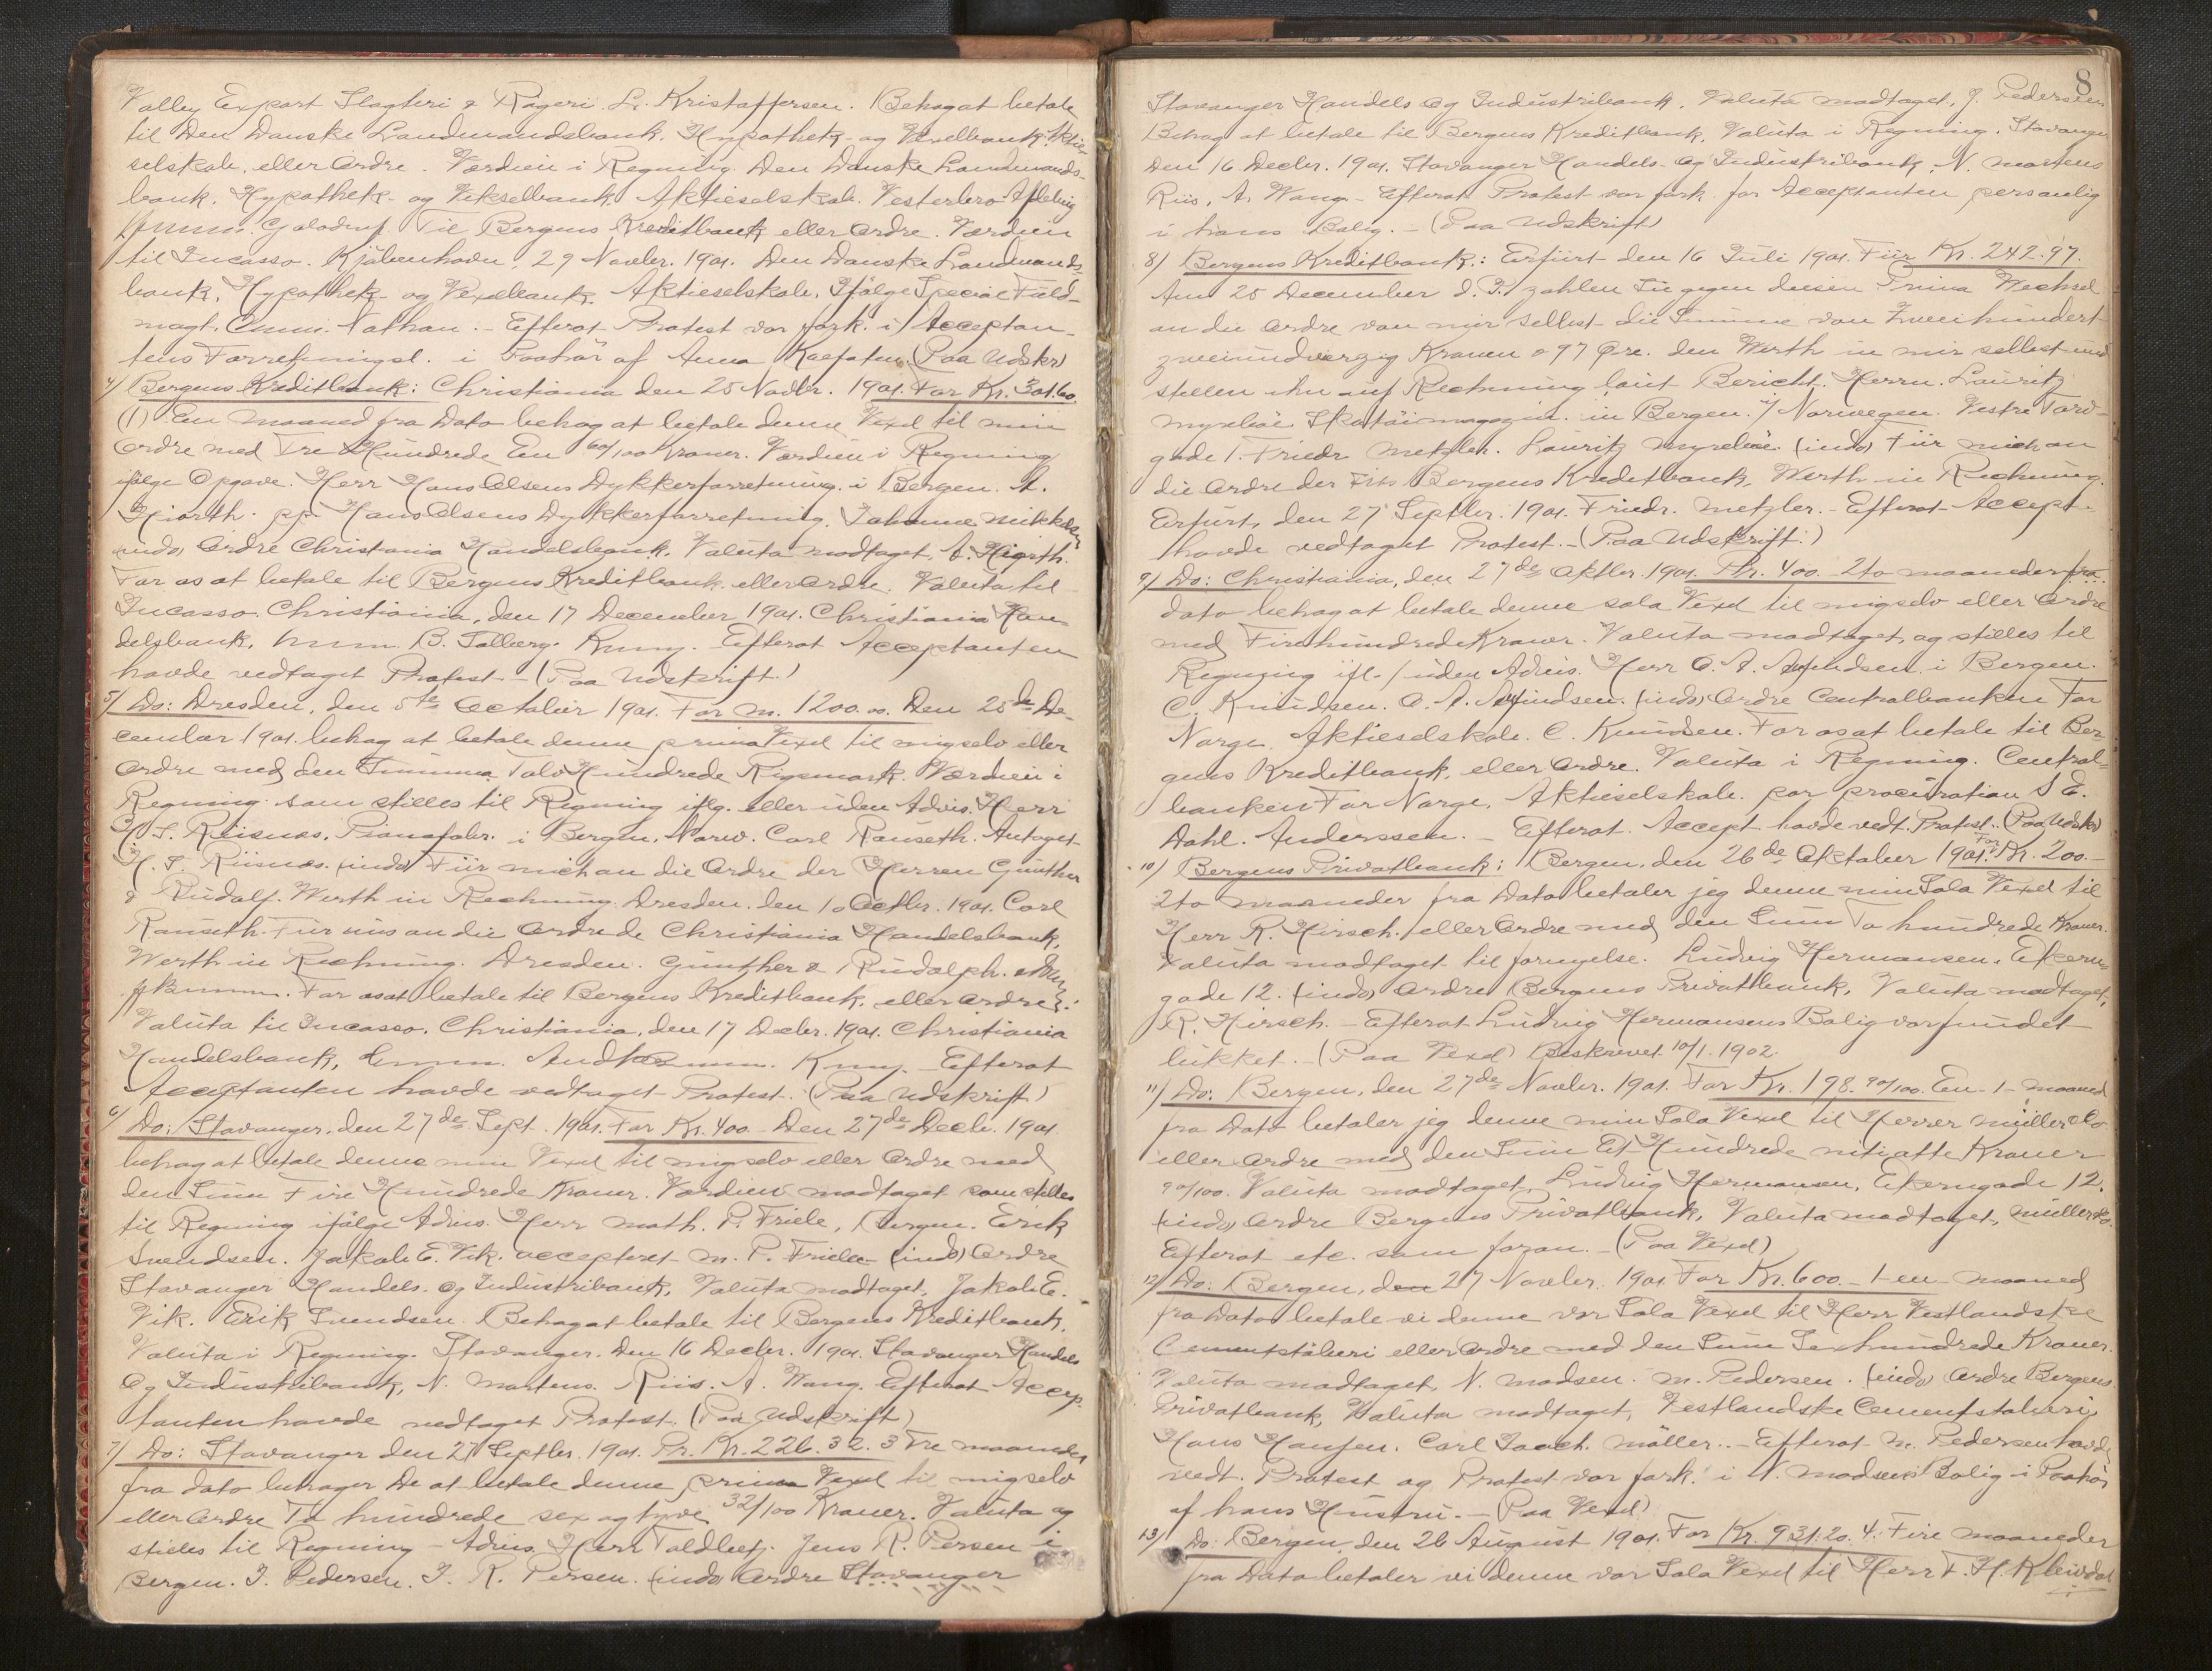 Valley Export Slagteri & Rögeri. L. Kristoffersen. Behag at betale
til Den Danske Landmandsbank, Hypothek- og Vexelbank, Aktie-
selskab. eller Ordre. Værdien i Regning. Den Danske Landmands-
bank. Hypothek- og Vekselbank. Aktieselskab. Vesterbro Afdeling
Til Bergens Kreditbank eller Ordre. Værdien
til Incasso. Kjöbenhavn, 29 Novbr. 1901. Den Danske Landmands-
bank, Hypothek- og Vexelbank. Aktieselskab. Ifölge Special Fuld-
magt. Nathan. - Efterat Protest var fork. i Acceptan-
tens Forretningsl. i Paahör af Anna (Paa Udskr)
4/ Bergens Kreditbank: Christiania den 25 Novbr. 1901. For Kr. 301.60.
(1) En Maaned fra Dato behag at betale denne Vexel til min
Ordre med Tre Hundrede En 60/100 Kroner. Værdien i Regning
ifölge Opgave. Herr Hans Olsens Dykkerforretning i Bergen. A.
Hiorth. pp. Hans Olsens Dykkerforretning. Johanne Mikkelsen
(indo) Ordre Christiania Handelsbank. Valuta modtaget. A. Hiorth.
For os at betale til Bergens Kreditbank eller Ordre. Valuta til
Incasso. Christiania, den 17 December 1901. Christiania Han-
delsbank. B. Solberg. - Efterat Acceptanten
havde vedtaget Protest. - (Paa Udskrift.)
5/ Do: Dresden, den 5te October 1901. For M. 1200.00. Den 25de De-
cember 1901. behag at betale denne prima Vexel til mig selv eller
Ordre med den Summa Tolv Hundrede Rigsmark. Værdien i
Regning som stilles til Regning iflg. eller uden Advis. Herr
H. S. Riisnæs. Pianofabr. i Bergen. Norw. Carl Rauseth. Antaget
H. S. Riisnæs. (indo) Für mich an die Ordre der Herren Günther
& Rudolf. Werth in Rechnung. Dresden. den 10 Octbr. 1901. Carl
Rauseth. Für uns an die Ordre de Christiania Handelsbank,
Werth in Rechnung. Dresden. Günther & Rudolph.
For os at betale til Bergens Kreditbank. eller Ordre.
Valuta til Incasso. Christiania. den 17 Decbr. 1901. Christiania
Handelsbank, Efterat
Acceptanten havde vedtaget Protest. (Paa Udskrift)
6/ Do: Stavanger. den 27de Sept. 1901. For Kr. 400. Den 27de Decb. 1901.
behag at betale denne min Vexel til mig selv eller Ordre med
den Sum Fire Hundrede Kroner. Værdien modtaget som stilles
til Regning ifölge Advis. Herr Math. P. Friele, Bergen. Erik
Svendsen. Jakob E. Vik. accepteret M. P. Friele (indo) Ordre
Stavanger Handels- og Industribank, Valuta modtaget, Jakob E.
Vik. Erik Svendsen. Behag at betale til Bergens Kreditbank.
Valuta i Regning. Stavanger. den 16 Decbr. 1901. Stavanger Handels
og Industribank, N. Mortens. Riis. A. Wang. Efterat Accep-
tanten havde vedtaget Protest. (Paa Udskrift)
7/ Do: Stavanger den 27 Septbr. 1901. Pr. Kr. 226.32. 3 Tre Maaneder
fra dato behager De at betale denne prima Vexel til mig selv
eller Ordre To hundrede sex og tyve 32/100 Kroner. Valuta og
stilles til Regning - Advis. Herr Toldbetj. Jens R. Persen i
Bergen. J. Pedersen. J. R. Persen. (indo) Ordre Stavanger
8
Stavanger Handels og Industribank. Valuta modtaget, J. Pedersen
Behag at betale til Bergens Kreditbank. Valuta i Regning. Stavanger
den 16 Decbr. 1901. Stavanger Handels- og Industribank. N. Mortens
Riis. A. Wang - Efterat Protest var fork. for Acceptanten personlig
i hans Bolig. - (Paa Udskrift)
8/ Bergens Kreditbank: Erfurt den 16 Juli 1901. Für Kr. 242.97.
Am 25 December d. J. zahlen Sie gegen diesen Prima Wechsel
an die Ordre von mir selbst die Summe von Zweihundert
zweiundvierzig Kronen & 97 Öre. den Werth in mir selbst und
stellen ihn auf Rechnung laut Bericht. Herrn Lauritz
Myreböe Skotöimagazin. in Bergen. i/ Norwegen. Vestre Torv-
gade 1. Friedr. Metzler. Lauritz Myreböe. (indo) Für mich an
die Ordre der Bergens Kreditbank, Werth in Rechnung.
Erfurt, den 27 Septbr. 1901. Friedr. Metzler. - Efterat Accept.
havde vedtaget Protest. - (Paa Udskrift.)
9/ Do: Christiania, den 27de Oktbr. 1901. Pr. 400 - 2to maaneder fra
dato behag at betale denne sola Vexel til mig selv eller Ordre
med Firehundrede Kroner. Valuta modtaget, og stilles til
Regning ifl. / uden Advis. Herr O. A. Amundsen i Bergen.
C. Knudsen. O. A. Amundsen. (indo) Ordre Centralbanken For
Norge Aktieselskab. C. Knudsen. For os at betale til Ber-
gens Kreditbank, eller Ordre. Valuta i Regning. Central-
banken For Norge, Aktieselskab. par procuration S. E.
Dahl. Anderssen. - Efterat Accept. havde vedt. Protest. (Paa Udskr)
10) Bergens Privatbank: Bergen, den 26de Oktober 1901. For Kr. 200.-
2to maaneder fra Dato betaler jeg denne min Sola Vexel til
Herr R. Hirsch. eller Ordre med den Sum To hundrede Kroner.
Valuta modtaget til fornyelse. Ludvig Hermansen. Ekern-
gade 12. (indo) Ordre Bergens Privatbank, Valuta modtaget,
R. Hirsch. - Efterat Ludvig Hermansens Bolig var fundet
lukket. - (Paa Vexel) Beskrevet 10/1. 1902.
11) Do: Bergen, den 27de Novbr. 1901. For Kr. 198. 90/100. En - 1 - maaned
fra Dato betaler jeg denne min Sola Vexel til Herrer Müller & Co
eller Ordre med den Sum Et Hundrede nitiotte Kroner
90/100. Valuta modtaget, Ludvig Hermansen, Ekerngade 12.
(indo) Ordre Bergens Privatbank, Valuta modtaget, Müller & Co.
Efterat etc. som foran. - (Paa Vexel)
12) Do: Bergen, den 27 Novbr. 1901. For Kr. 600. - 1 - en maaned
fra Dato betale vi denne vor Sola Vexel til Herr Vestlandske
Cementstöberi eller Ordre med den Sum Sex hundrede Kroner.
Valuta modtaget, N. Madsen. M. Pedersen. (indo) Ordre Bergens
Privatbank, Valuta modtaget, Vestlandske Cementstöberi,
Hans Hansen. Carl Joach. Möller. - Efterat M. Pedersen havde
vedt. Protest og Protest var fork. i N. Madsens Bolig i Paahör
af hans Hustru. - (Paa Vexel)
13) Do: Bergen, den 26 August 1901. For Kr. 931.20. 4. Fire maaneder
fra Dato betaler vi denne vor Sola Vexel til Herr F. H. Kleivdal